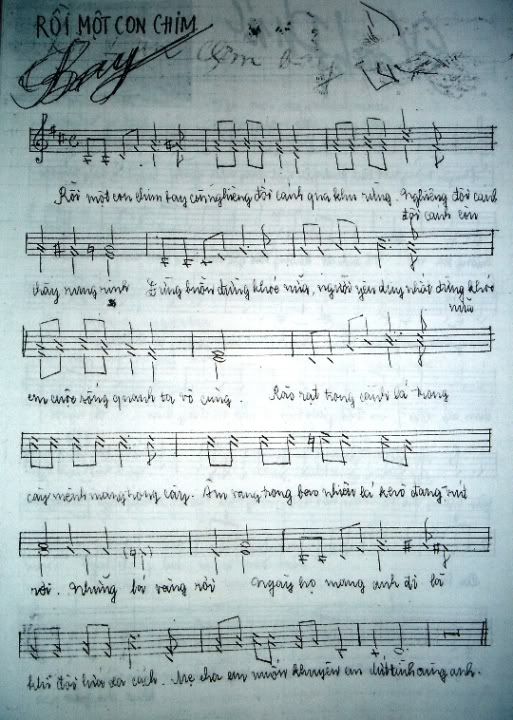 RỒI MỘT CON CHIM
Bay
Rồi một con chim bay cũng nghiêng đôi cánh qua khu rừng. Nghiêng đôi cánh
đôi cánh còn
Đừng buồn đừng khóc nữa, người yêu duy nhất đừng khóc
nữa
em cuộc sống quanh ta vô cùng. Rào rạt trong cánh lá trong
cây mênh mang trong cây. Âm vang trong bao nhiêu lá khô đang
rơi. Những lá vàng rơi Ngày họ mang anh đi là
khi đôi lứa xa cách. Mẹ cha em muốn khuyên em anh.